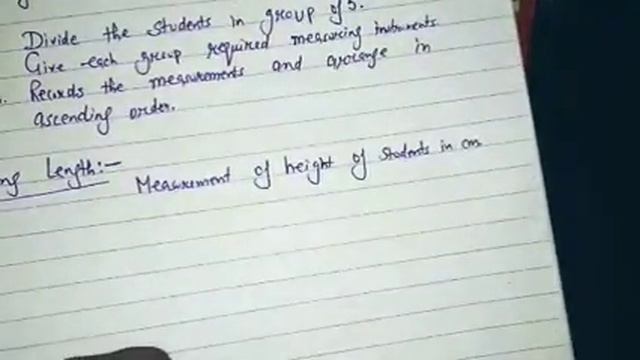 Divide the students in group of 5.
Give each group required measuring instruments
Records the measurements and average in
ascending order.
ng Length:-
Measurement of height of students in cm